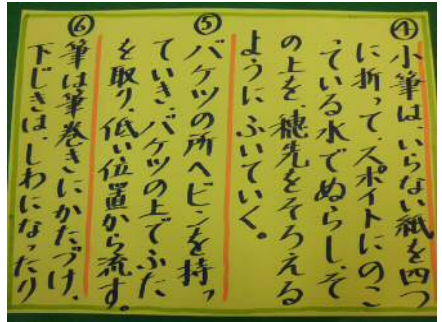 ④小筆は、いらない紙を四つ
に折って、スポイトにのこ
っている水でぬらし、そ
の上を、穂先をそろえる
ようにふいていく。
⑤バケツの所へビンを持っ
ていき、バケツの上でふた
を取り、低い位置から流す。
⑥筆は筆巻きにかたづけ、
下じきは、しわになったり